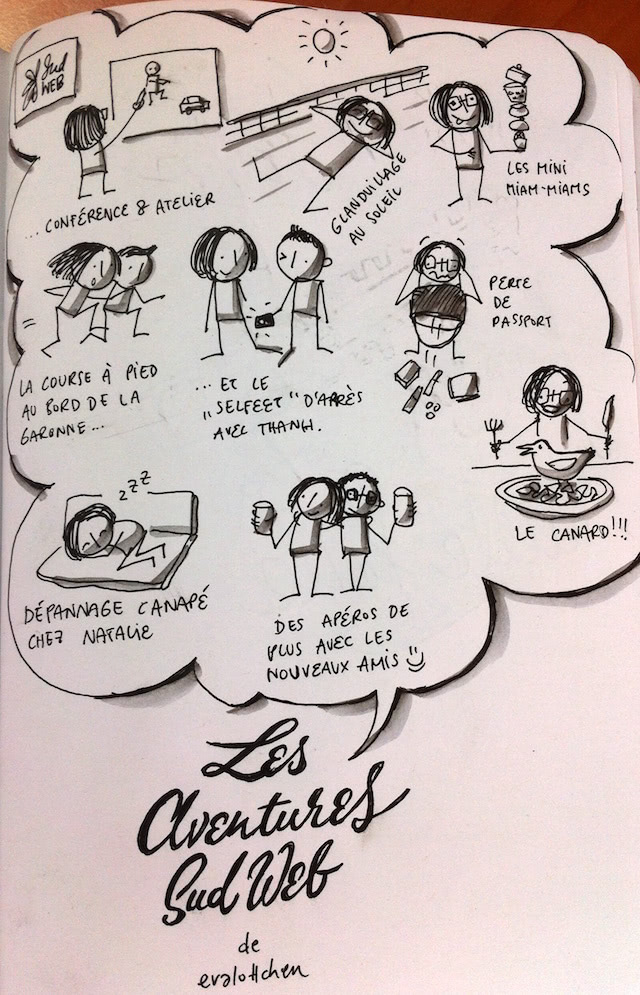 Sud
WEB
...CONFÉRENCE & ATELIER
GLANDUILLAGE
AU SOLEIL
LES MINI
MIAM-MIAMS
LA COURSE À PIED
AU BORD DE LA
GARONNE...
...ET LE
„SELFEET" D'APRÈS
AVEC THANH.
PERTE
DE
PASSPORT
LE CANARD!!!
zzz
DÉPANNAGE CANAPÉ
CHEZ NATALIE
DES APÉROS DE
PLUS AVEC LES
NOUVEAUX AMIS
Les
Aventures
Sud Web
de
evalottchen